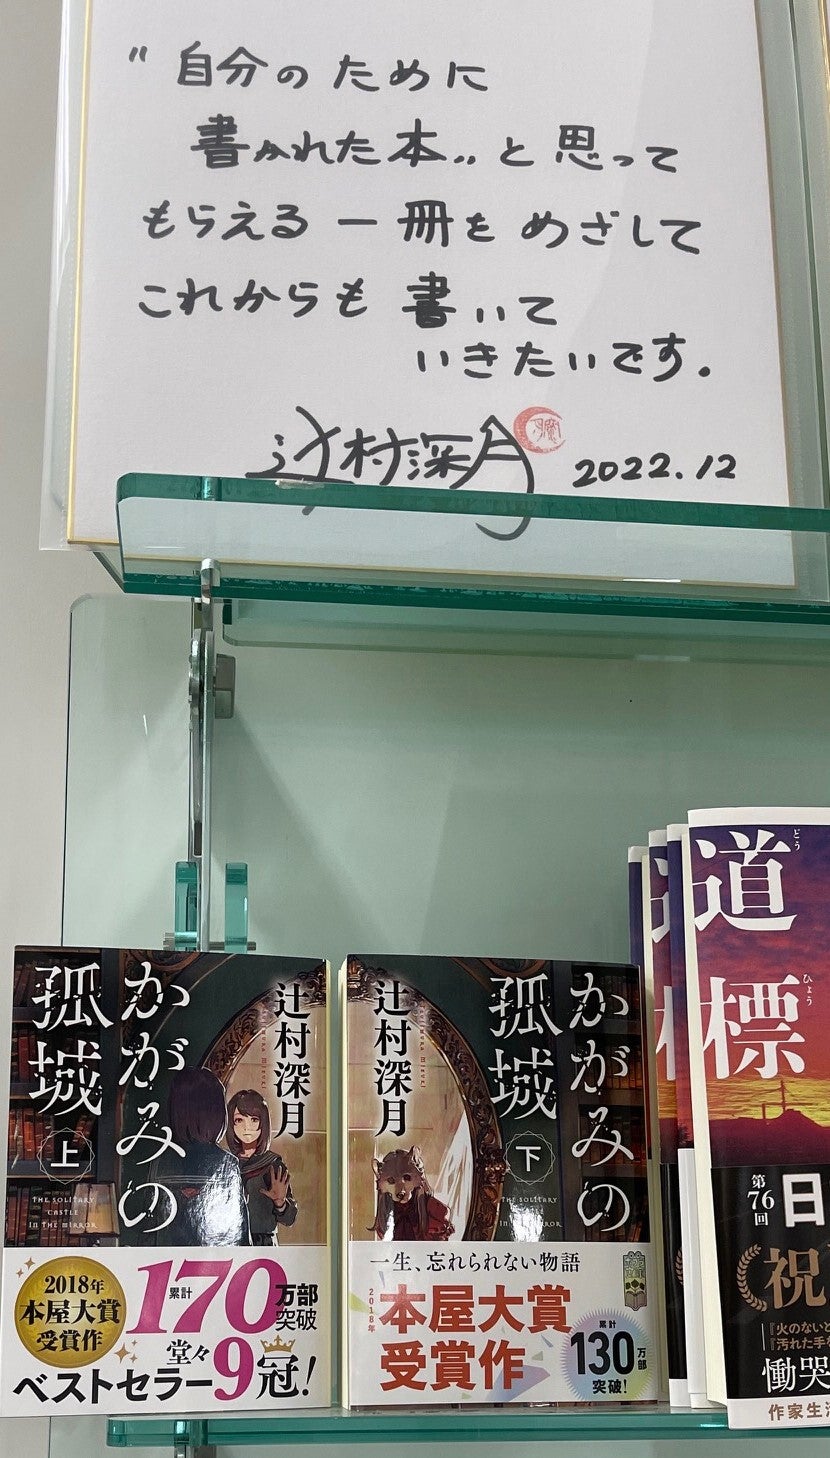 〝自分のために
書かれた本〟と思って
もらえる一冊をめざして
これからも書いて
いきたいです。
辻村深月 2022.12
かがみの
孤城
上
辻村深月
TSUJIMURA MIZUKI
THE SOLITARY
CASTLE
IN THE MIRROR
2018年
本屋大賞
受賞作
累計
170
万部
突破
堂々
ベストセラー9冠!
かがみの
孤城
下
辻村深月
TSUJIMURA MIZUKI
THE SOLITARY
CASTLE
IN THE MIRROR
一生、忘れられない物語
2018年
本屋大賞
受賞作
累計
130万部
突破!
道標
どう
ひょう
第76回
日
祝
『火のないと
『汚れた手を
慟哭
作家生活